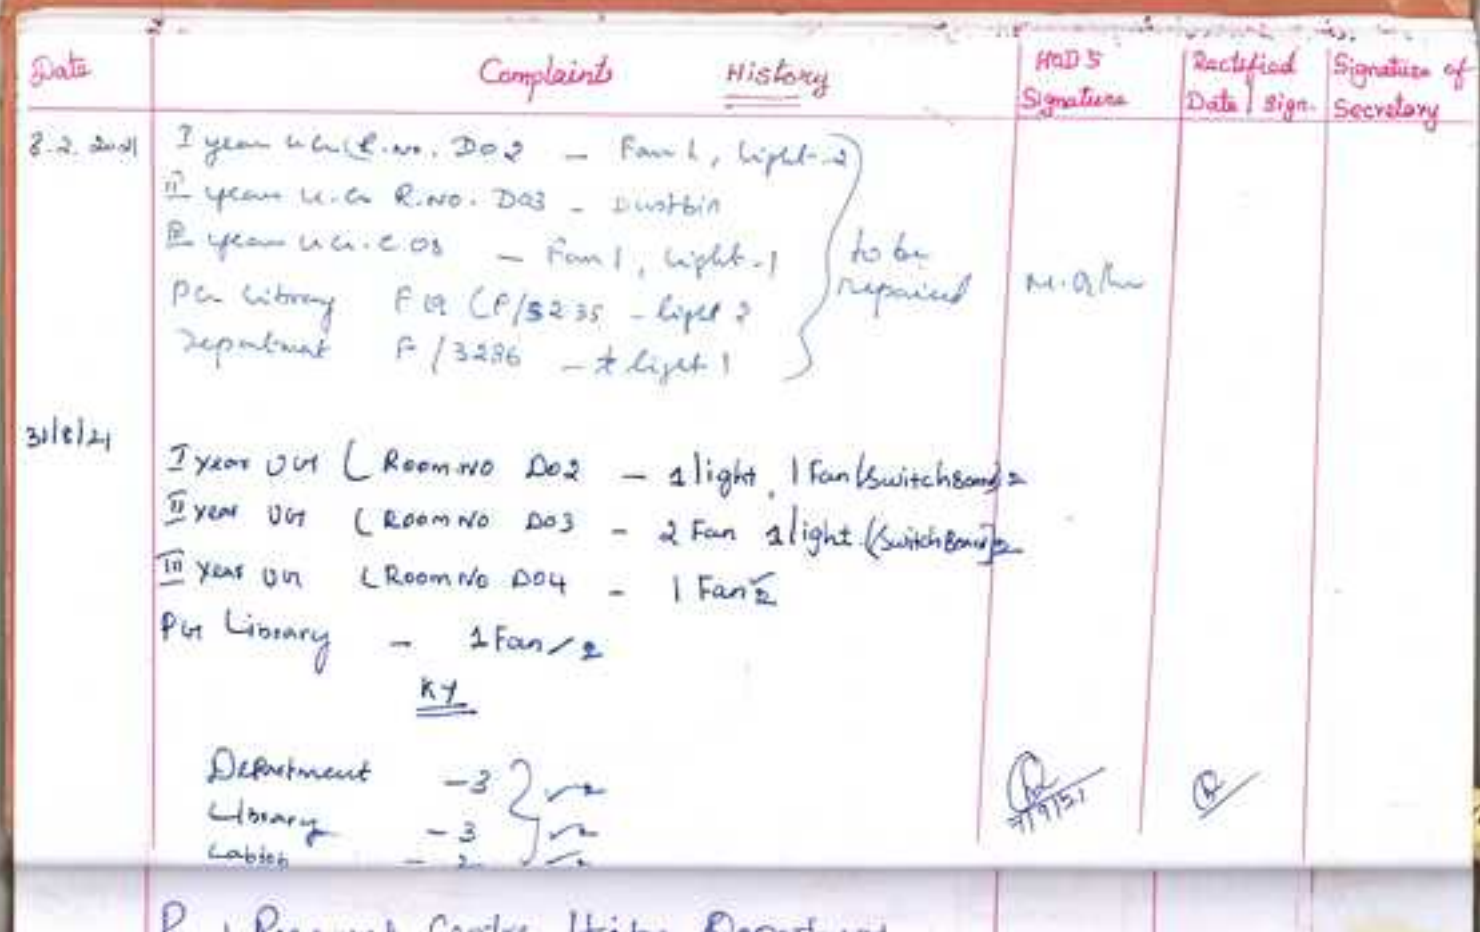 Date Complaints History HOD's Signature Rectified Date / Sign. Signature of Secretary
8.2.2021 I year U.G (R.No. D02 - Fan 1, Light-2
II year U.G R.NO. D03 - Dustbin
year U.G. - Fan 1, Light-1
to be repaired
PG Library F /3235 - light 2
Department F/3236 - light 1
31/8/21
I year UG ( Room NO D02 - 1 light, 1 Fan (Switch Board) 2
II year UG ( Room NO D03 - 2 Fan 1 light (Switch Board) 2
III year UG ( Room No D04 - 1 Fan 2
PG Library - 1 Fan 2
KY
Department - 3
Library - 3
- 2
Research Centre